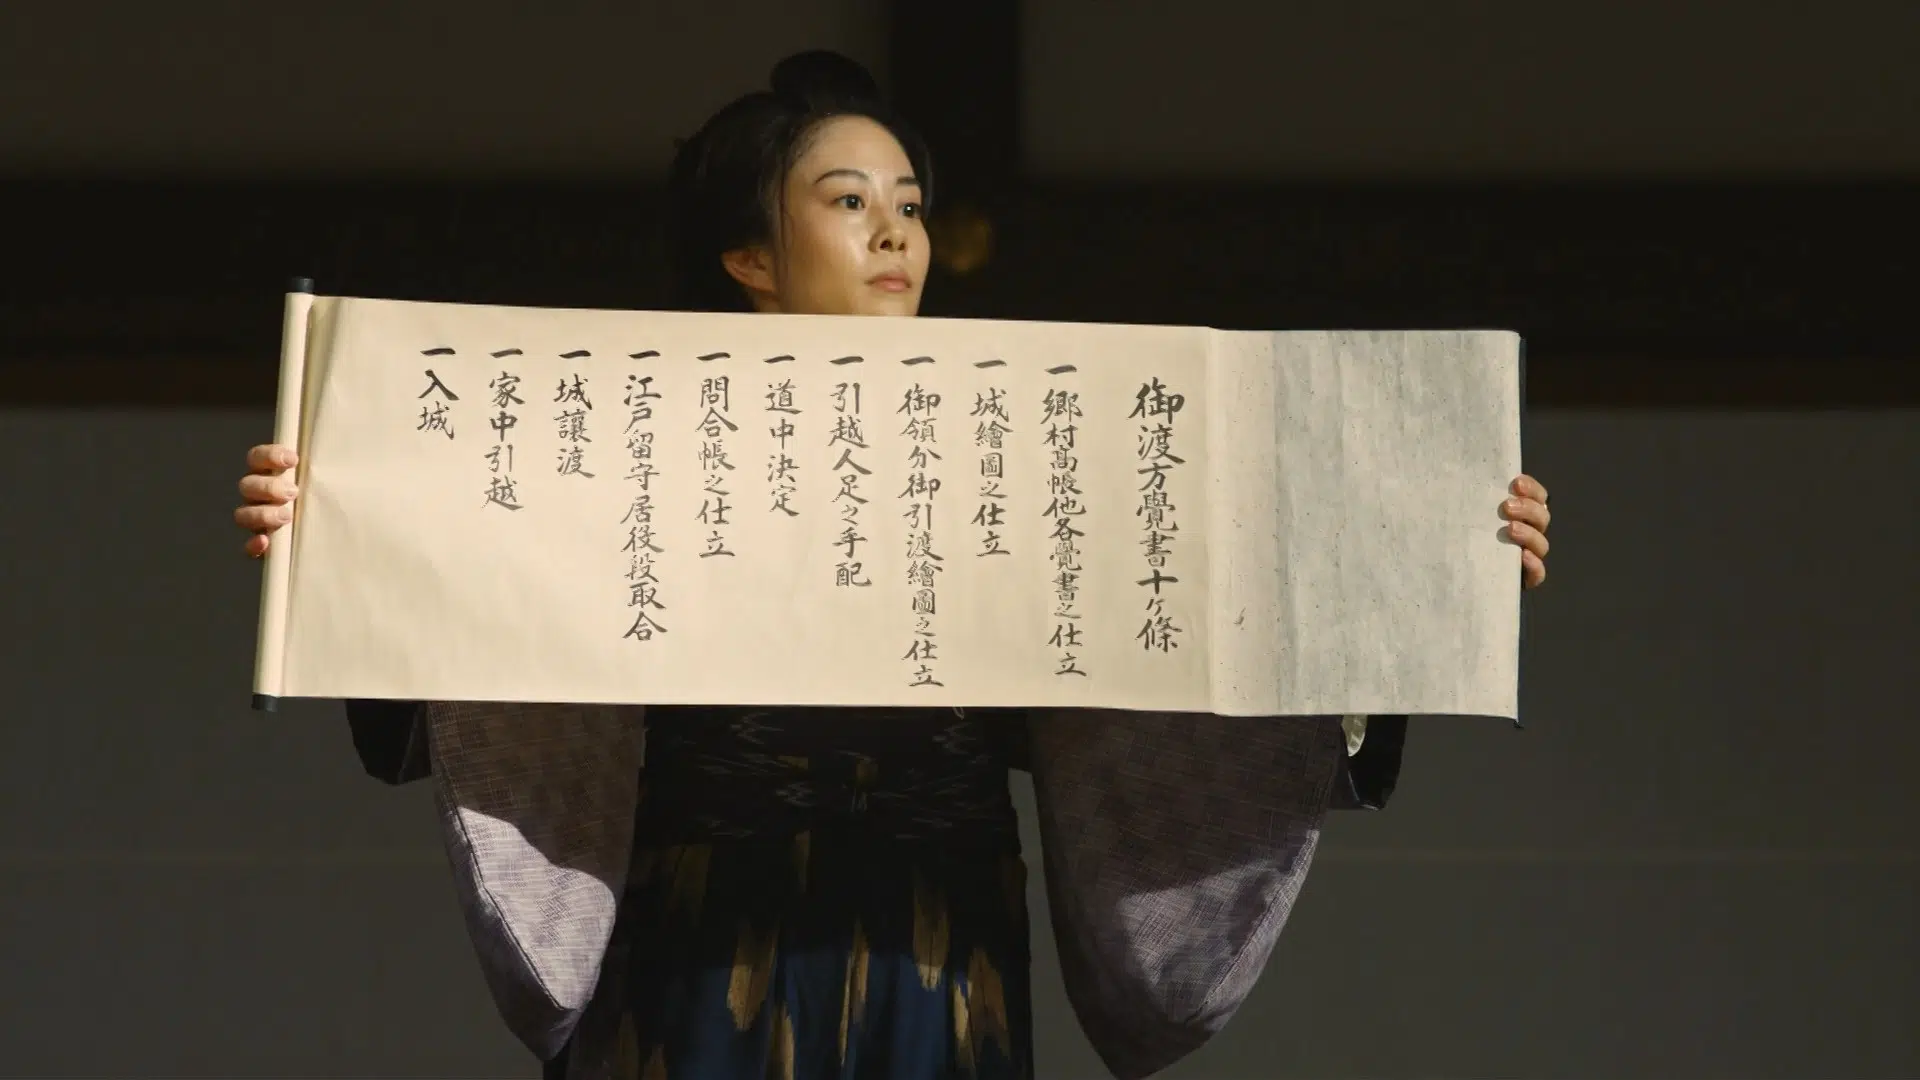 御渡方覺書十ケ條
一 鄉村高帳他各覺書之仕立
一 城繪圖之仕立
一 御領分御引渡繪圖之仕立
一 引越人足之手配
一 道中決定
一 問合帳之仕立
一 江戸留守居役段取合
一 城讓渡
一 家中引越
一 入城